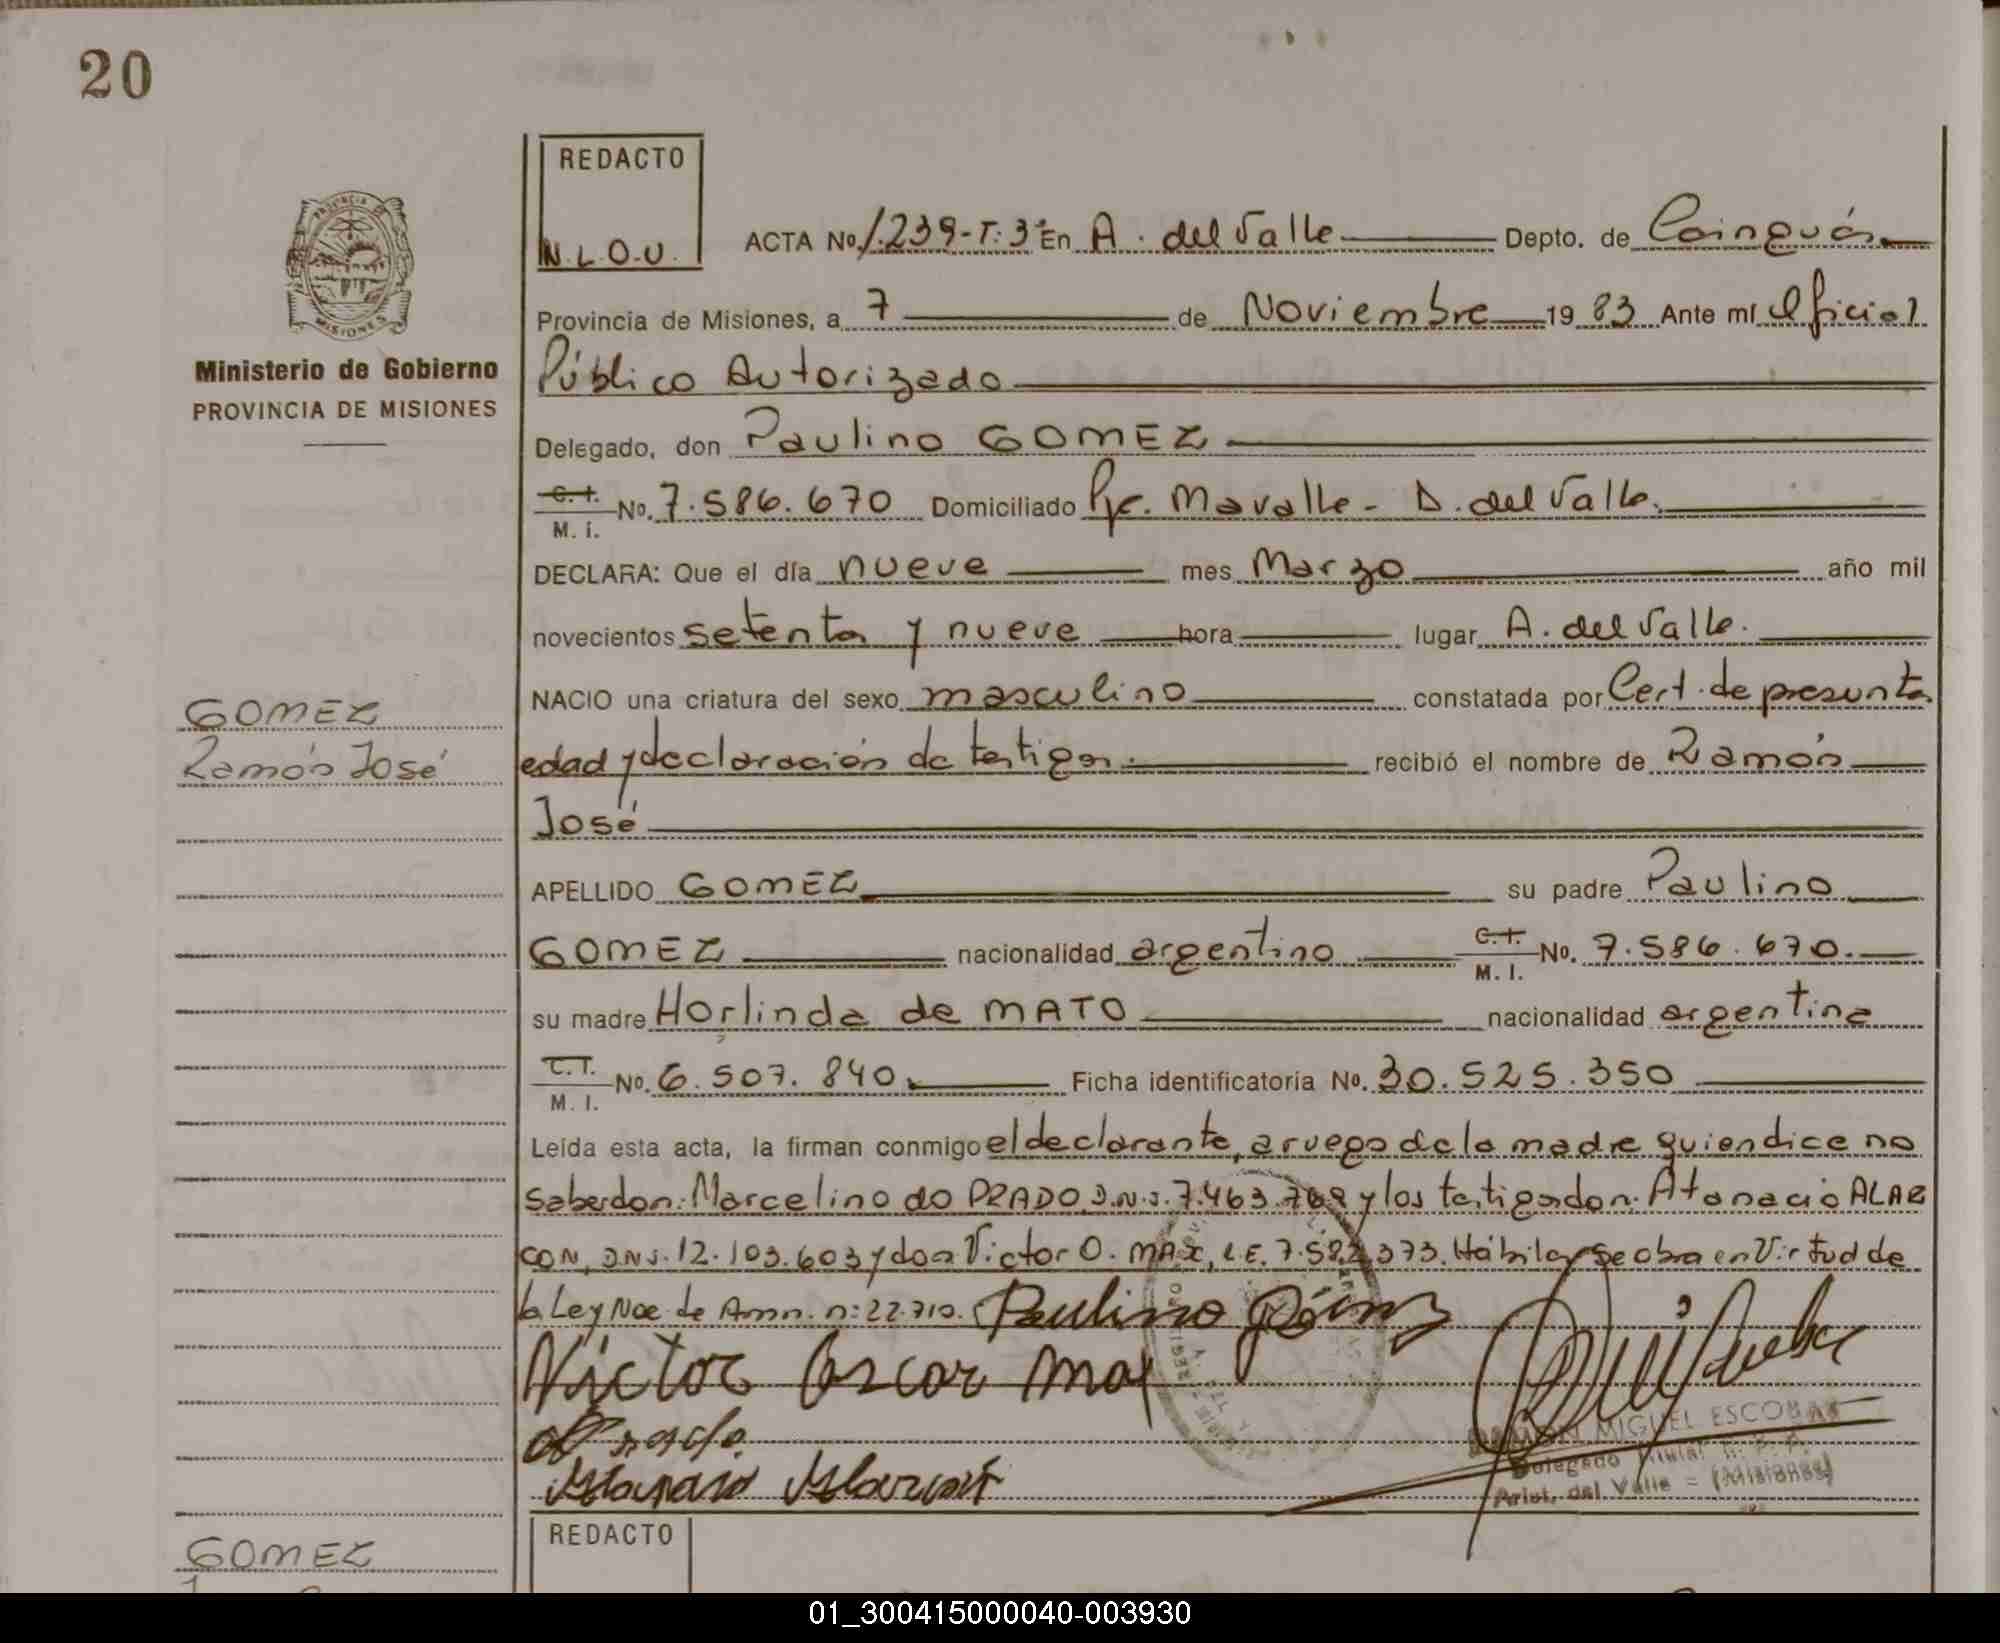 20
REDACTO
N.L.O.U.
PROVINCIA DE
MISIONES
Ministerio de Gobierno
PROVINCIA DE MISIONES
ACTA No. 1.239-T:3º En A. del Valle Depto. de Cainguás
Provincia de Misiones, a 7 de Noviembre 1983 Ante mí Oficial
Público Autorizado
Delegado, don Paulino GOMEZ
C.I. M.I. No. 7.586.670 Domiciliado Pje. Mavalle - D. del Valle.
DECLARA: Que el día nueve mes Marzo año mil
novecientos setenta y nueve hora lugar A. del Valle.
NACIO una criatura del sexo masculino constatada por Cert. de presunta
GOMEZ
Ramón José
edad y declaración de testigos. recibió el nombre de Ramón
José
APELLIDO GOMEZ su padre Paulino
GOMEZ nacionalidad argentino C.I. M.I. No. 7.586.670.
su madre Horlinda de MATO nacionalidad argentina
C.I. M.I. No. 6.507.840. Ficha identificatoria No. 30.525.350
Leída esta acta, la firman conmigo el declarante, a ruego de la madre quien dice no
saber don: Marcelino do PRADO D.N.I. 7.463.768 y los testigos don: Atanacio ALAR
CON, DNI. 12.103.603 y don Victor O. MAX, L.E. 7.582.373. Hábiles Se obra en Virtud de
la Ley Nac. de Amn. n: 22.710. Paulino Gómez
Victor Oscar Max
do Prado
Atanacio Alarcon
RAMON MIGUEL ESCOBAR
Delegado Titular
Arist. del Valle = (Misiones)
REDACTO
GOMEZ
01_300415000040-003930